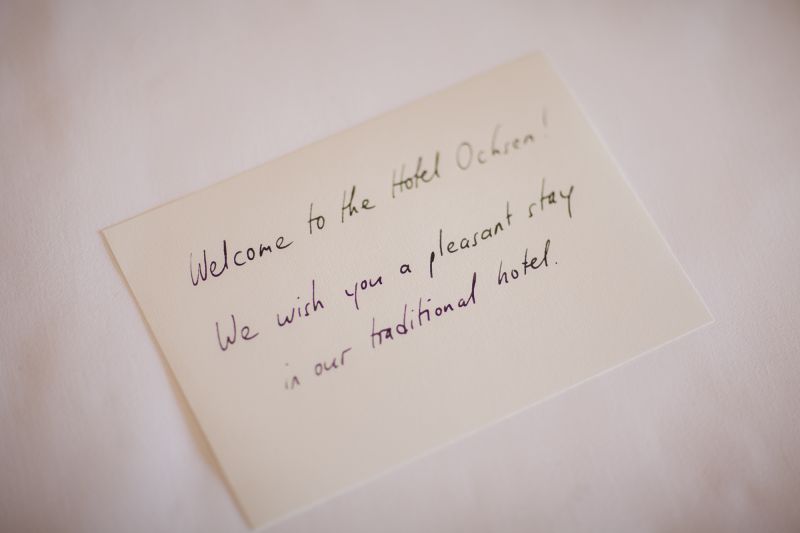 Welcome to the Hotel Ochsen!
We wish you a pleasant stay
in our traditional hotel.